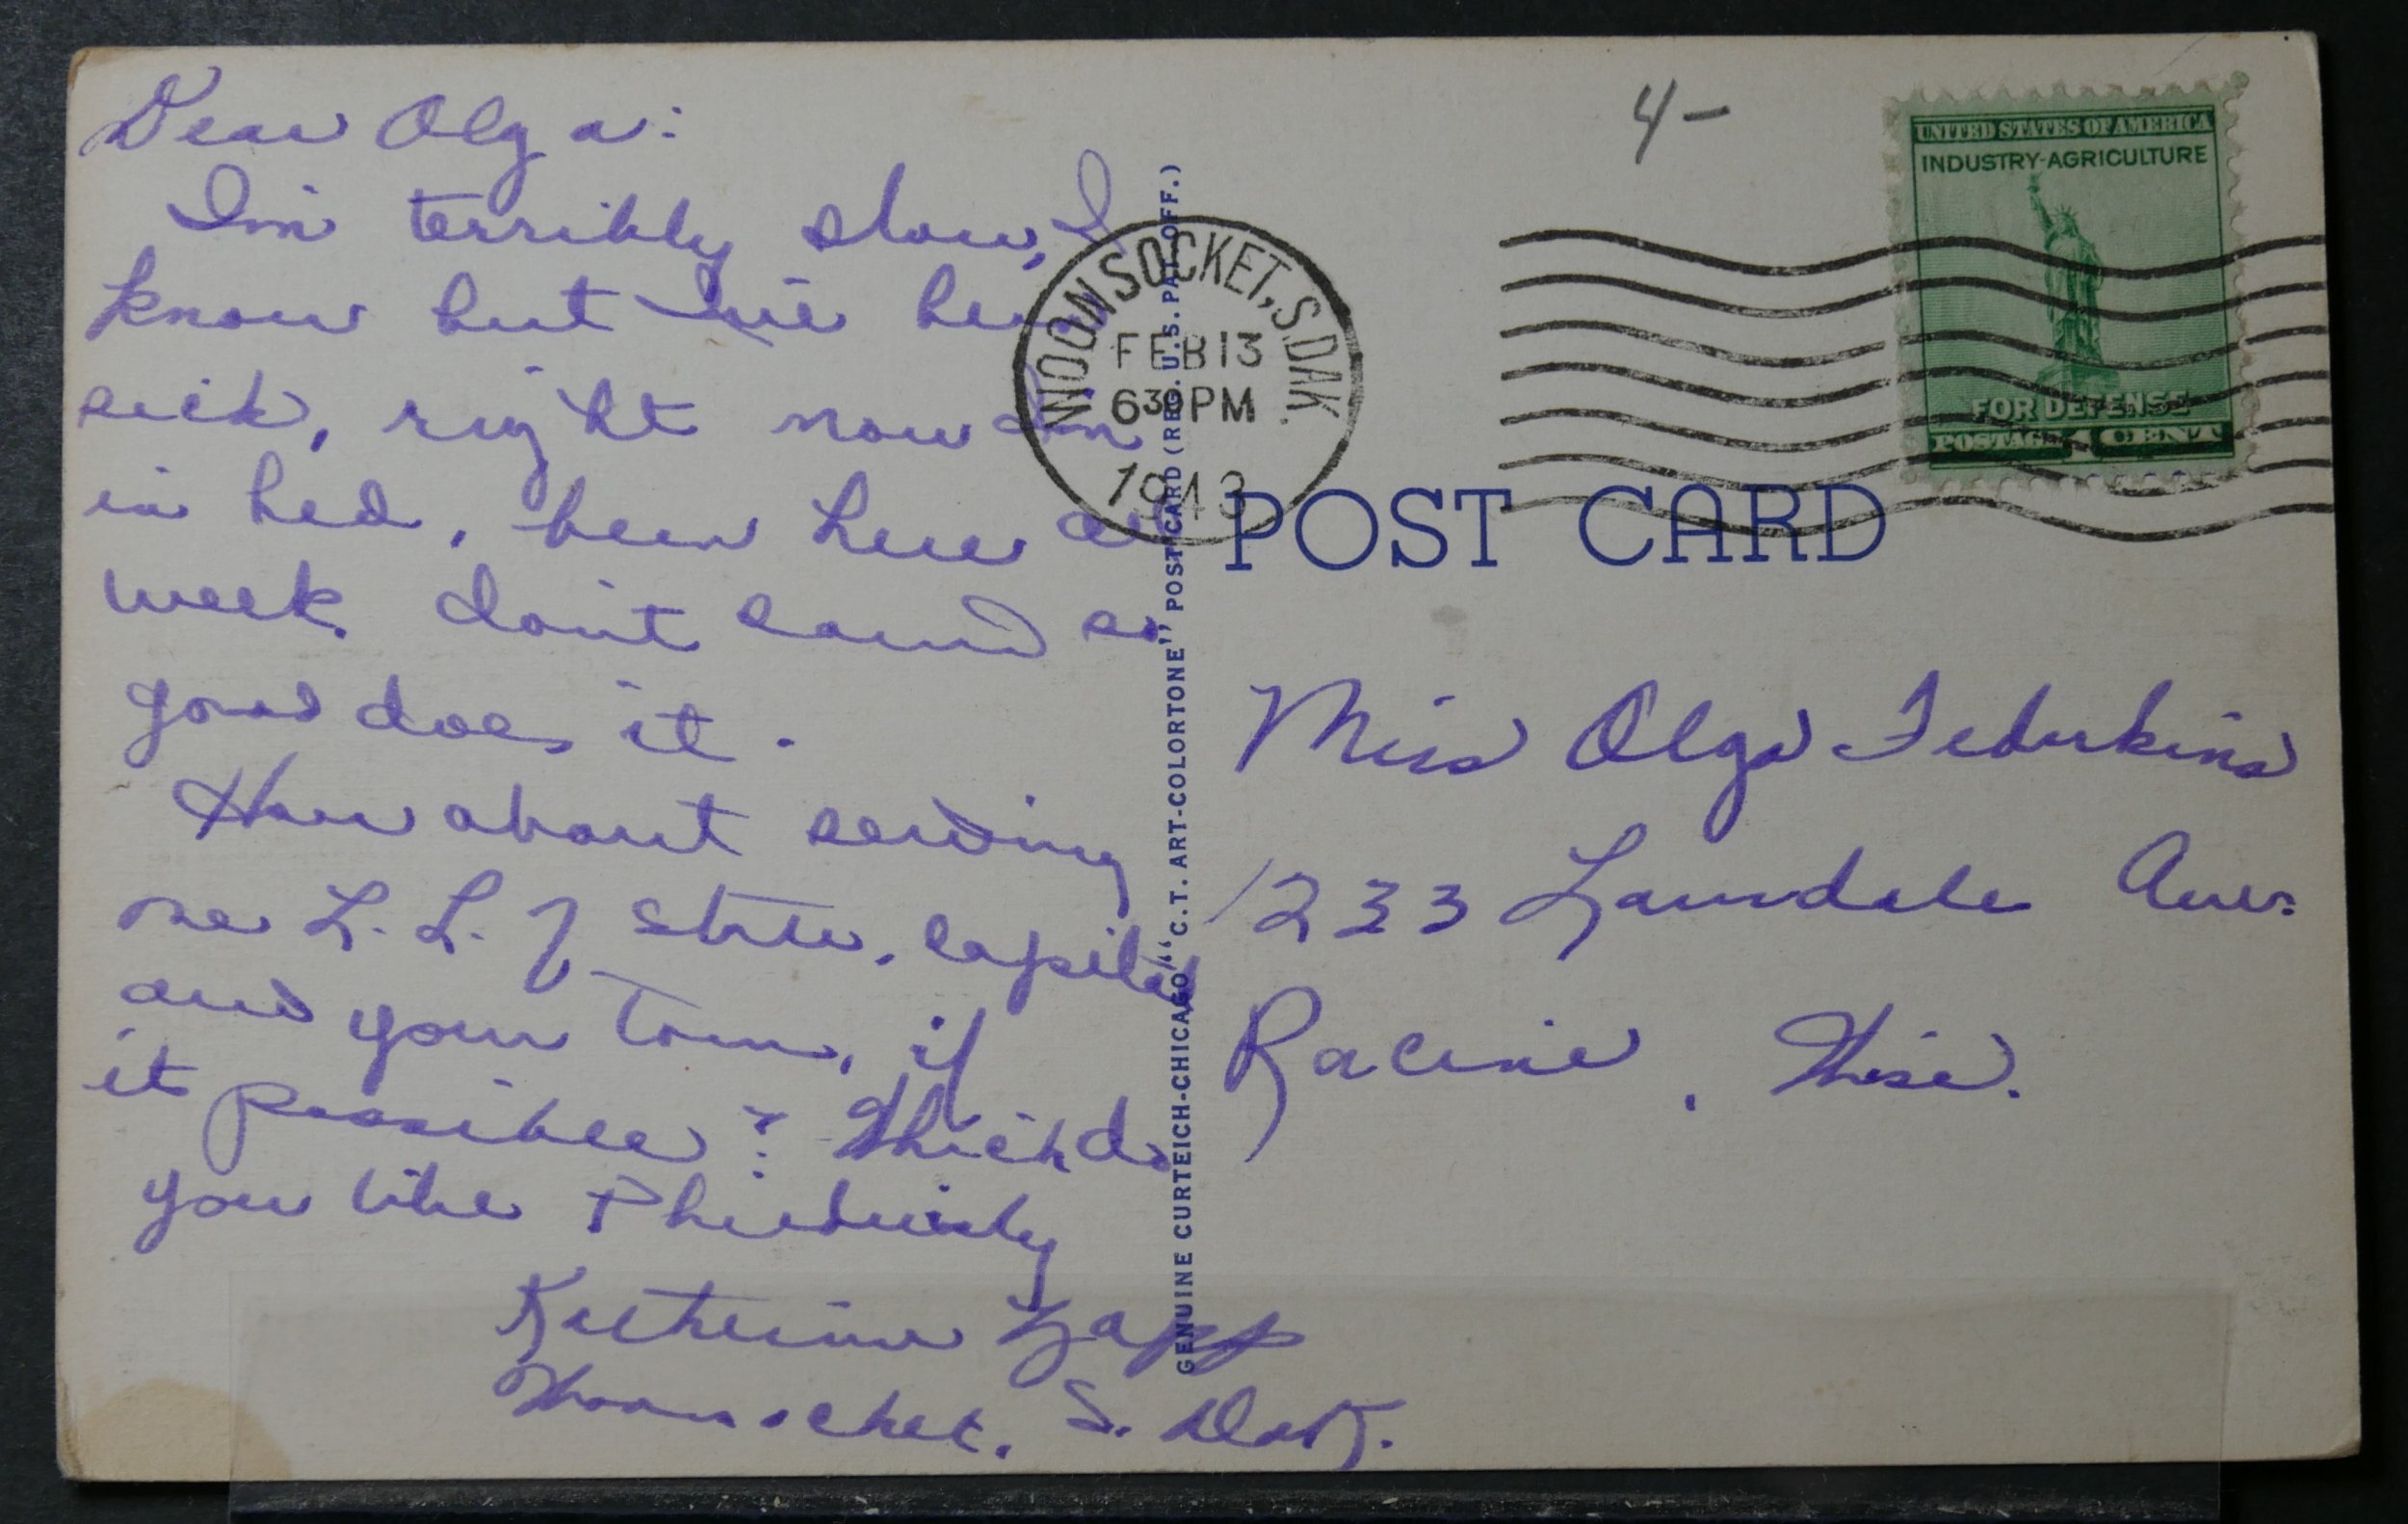 Dear Olga:
I'm terribly slow, I
know but I've been
sick, right now I'm
in bed, been here a
week. don't sound so
good does it.
How about sending
me L. L. of state, capitol
and your town, if
it possible? Which do
you like
Katherine Zapp
Woonsocket, S. Dak.
4-
UNITED STATES OF AMERICA
INDUSTRY-AGRICULTURE
FOR DEFENSE
POSTAGE 1 CENT
WOONSOCKET, S. DAK.
FEB 13
630 PM
1943
POST CARD
Miss Olga
1233 Lawndale Ave.
Racine, Wisc.
GENUINE CURTEICH-CHICAGO "C.T. ART-COLORTONE" POST CARD (REG. U.S. PAT. OFF.)